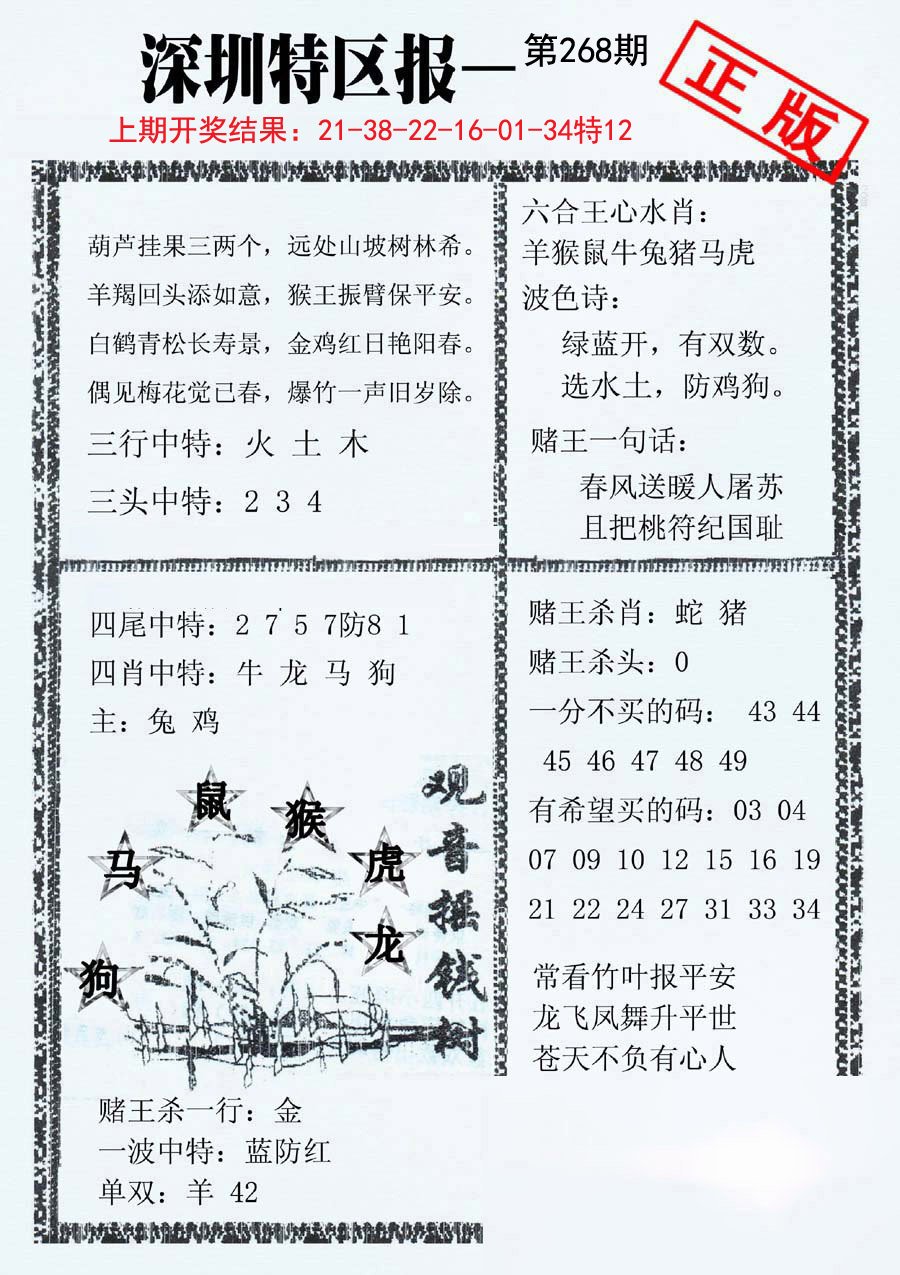 深圳特区报—第268期
正版
上期开奖结果：21-38-22-16-01-34特12
葫芦挂果三两个，远处山坡树林希。
羊羯回头添如意，猴王振臂保平安。
白鹤青松长寿景，金鸡红日艳阳春。
偶见梅花觉已春，爆竹一声旧岁除。
三行中特：火 土 木
三头中特：2 3 4
六合王心水肖：
羊猴鼠牛兔猪马虎
波色诗：
绿蓝开，有双数。
选水土，防鸡狗。
赌王一句话：
春风送暖人屠苏
且把桃符纪国耻
四尾中特：2 7 5 7防8 1
四肖中特：牛 龙 马 狗
主：兔 鸡
鼠
猴
马
虎
龙
狗
观音摇钱树
赌王杀一行：金
一波中特：蓝防红
单双：羊 42
赌王杀肖：蛇 猪
赌王杀头：0
一分不买的码： 43 44
45 46 47 48 49
有希望买的码：03 04
07 09 10 12 15 16 19
21 22 24 27 31 33 34
常看竹叶报平安
龙飞凤舞升平世
苍天不负有心人